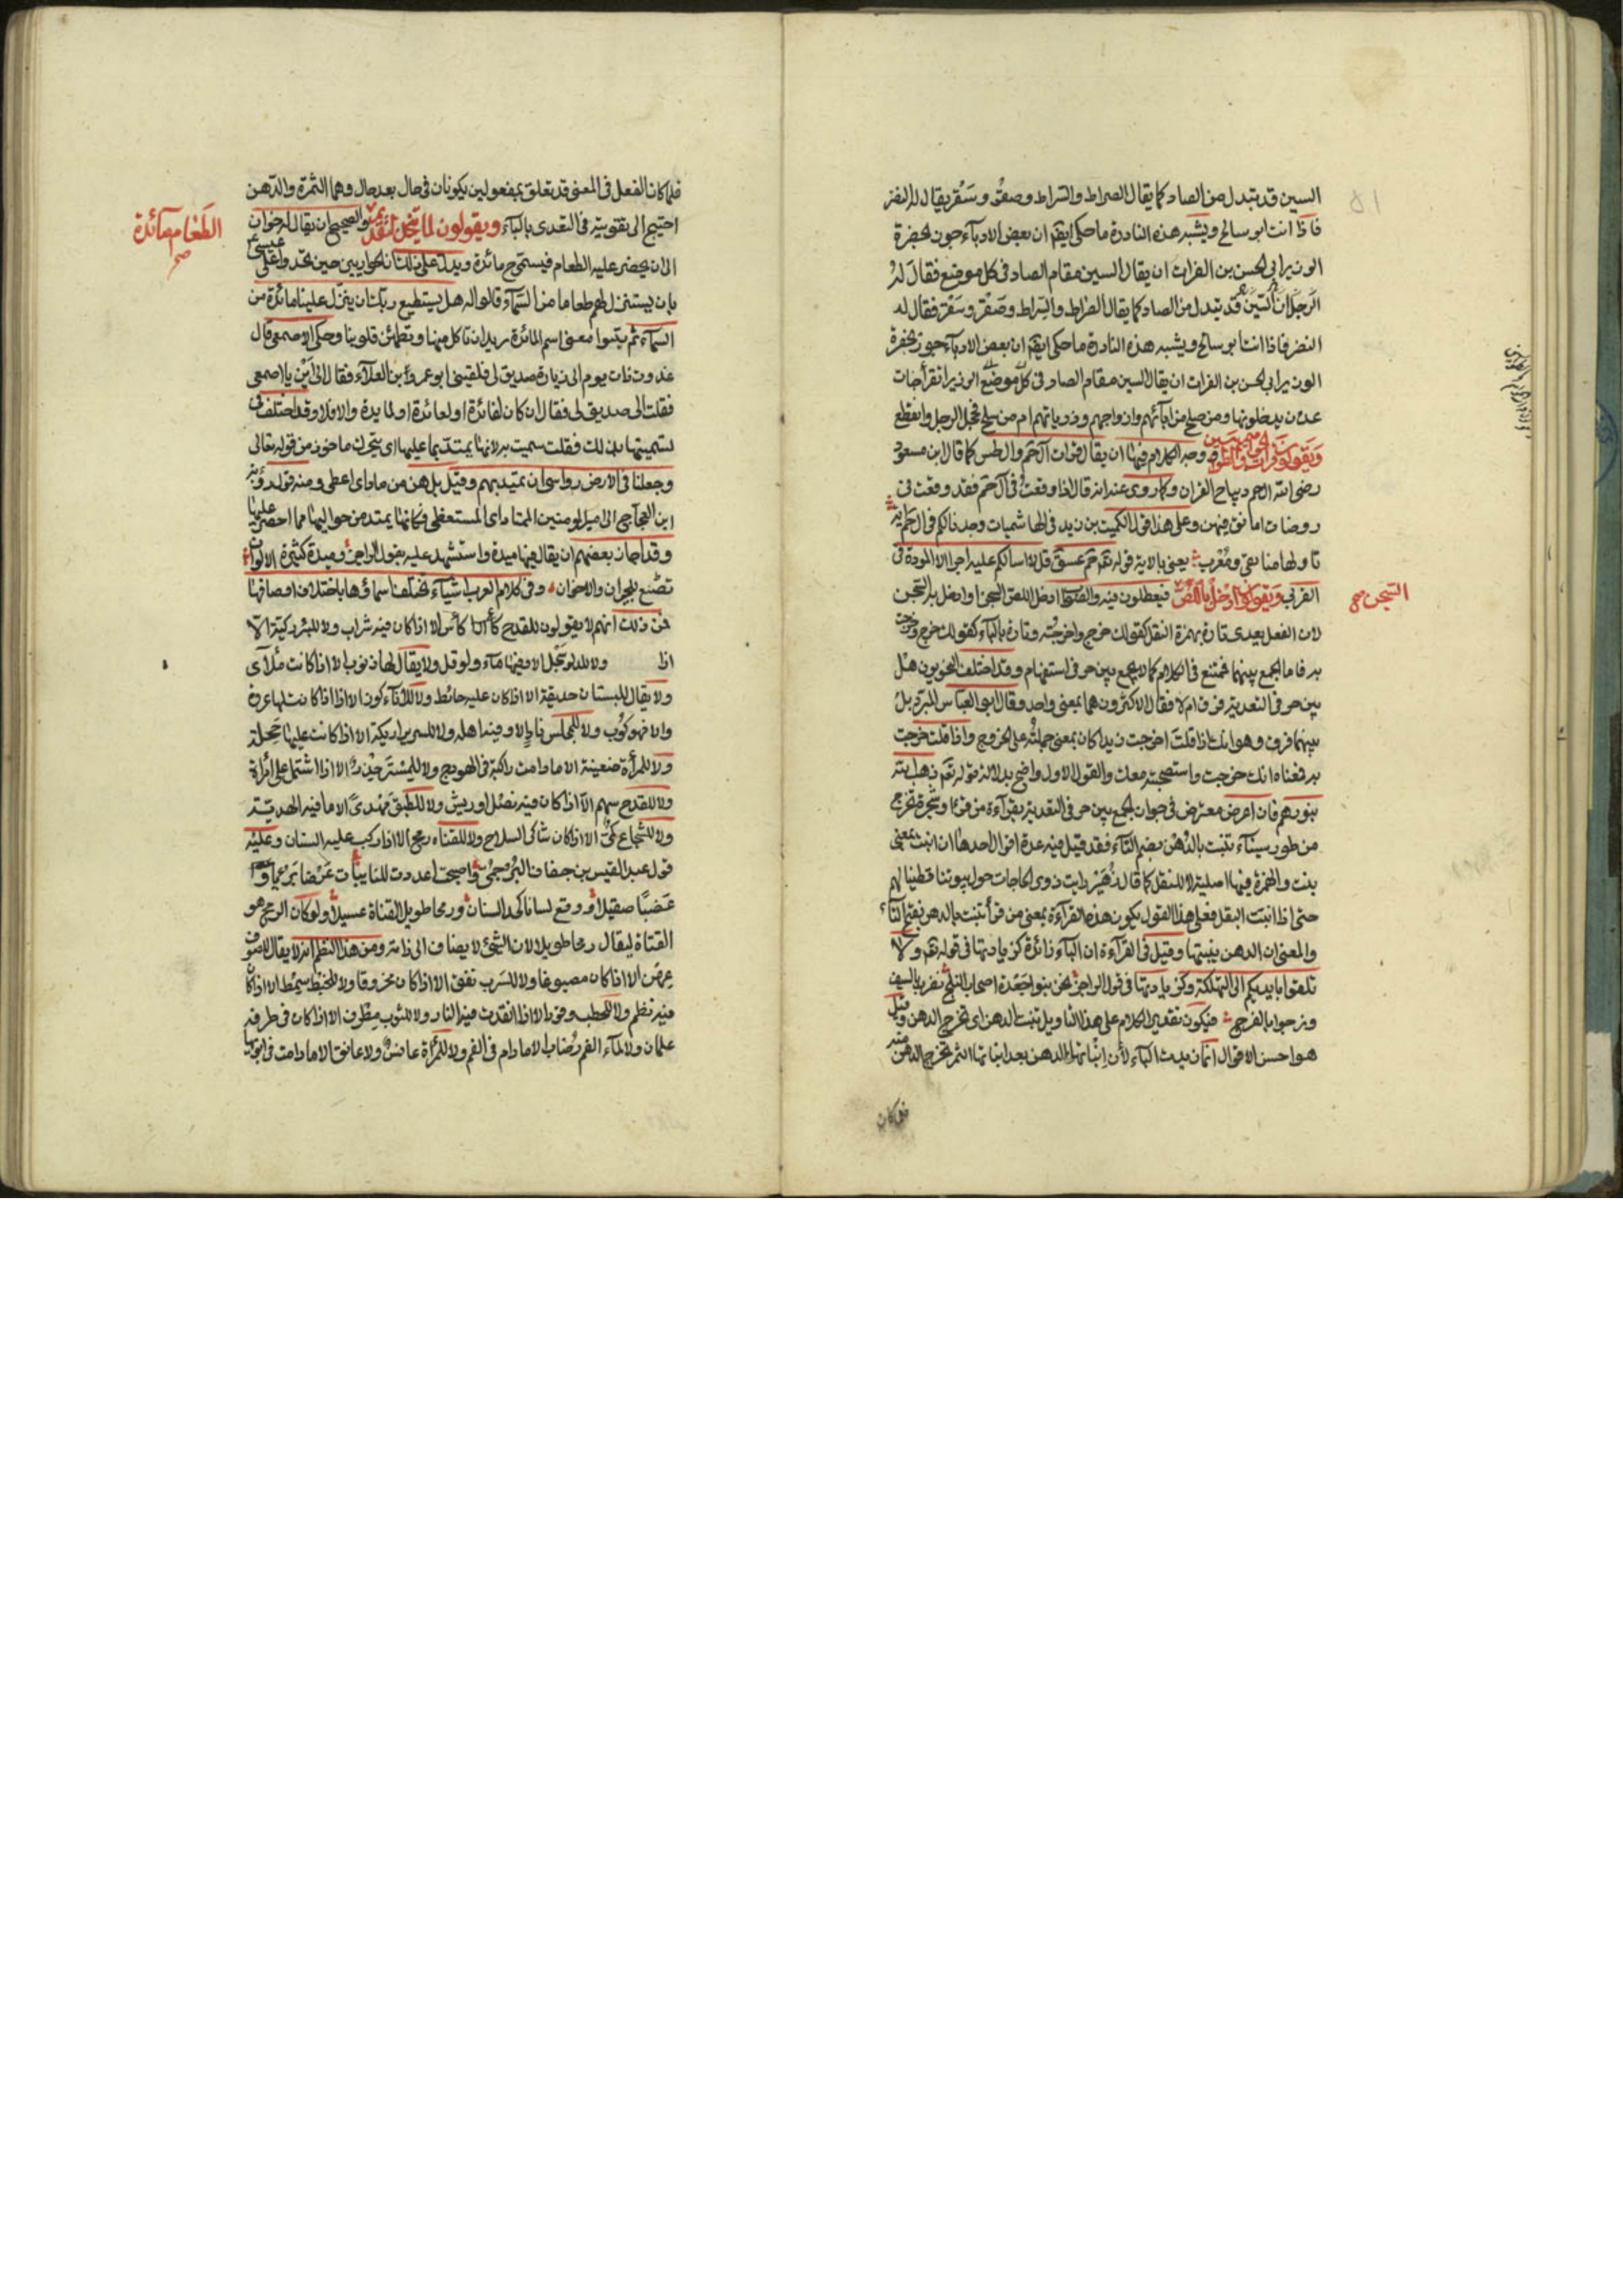 السين قد تبدل من الصاد كما يقال الصراط والسراط وصقر وسقر يقال له النضر
فاذا انت ابو سالح ويشبه هذه النادرة ما حكى ايضا ان بعض الادباء جوز بحضرة
الوزير ابي الحسن بن الفرات ان يقال السين مقام الصاد في كل موضع فقال له
الرجل ان السين قد يتبدل من الصاد كما يقال الصراط والسراط وصقر وسقر فقال له
النضر فاذا انت ابو سالح ويشبه هذه النادرة ما حكى ايضا ان بعض الادباء جوز بحضرة
الوزير ابي الحسن بن الفرات ان يقال السين مقام الصاد في كل موضع الوزير اتقرأ جنات
عدن يدخلونها ومن صلح من ابائهم وازواجهم وذرياتهم ام من سلح فخجل الرجل وانقطع
ويقولون قرات الحواميم والطواسين ووجه الكلام فيهما ان يقال قرات آل حم وآل طس كما قال ابن مسعود
رضي الله ال حم ديباج القران وكما روى عنه انه قال اذا وقعت في آل حم فقد وقعت في
روضات اتانق فيهن وعلى هذا قول الكميت بن زيد في الهاشميات وجدنا لكم في ال حم اية
تاولها منا تقي ومعرب يعني بالاية قوله تعم حم عسق قل لا اسالكم عليه اجرا الا المودة في
القربى ويقولون ادخل باللص السجن فيغلطون فيه والصواب ادخل اللص السجن او دخل به السجن
لان الفعل يعدى تارة بهمزة النقل كقولك خرج واخرجته وتارة بالباء كقولك خرج وخرجت
به فاما الجمع بينهما فممتنع في الكلام كما لا يجمع بين حرفي استفهام وقد اختلف النحويون هل
بين حرفي التعدية فرق ام لا فقال الاكثرون هما بمعنى واحد وقال ابو العباس المبرد بل
بينهما فرق وهو انك اذا قلت اخرجت زيدا كان بمعنى حملته على الخروج واذا قلت خرجت
به فمعناه انك خرجت واستصحبته معك والقول الاول واضح بدلالة قوله تعم ذهب الله
بنورهم فان اعترض معترض في جواز الجمع بين حرفي التعدية بقراءة من قرا وشجرة تخرج
من طور سيناء تنبت بالدهن بضم التاء فقد قيل فيه عدة اقوال احدها ان انبت بمعنى
نبت والهمزة فيها اصلية لا للنقل كما قال زهير رايت ذوى الحاجات حول بيوتنا قطينا لهم
حتى اذا انبت البقل فعلى هذا القول يكون هذه القراءة بمعنى من قرأ تنبت بالدهن بفتح التاء
والمعنى ان الدهن ينبتها وقيل في القراءة ان الباء زائدة كزيادتها في قوله تعم ولا
تلقوا بايديكم الى التهلكة وكزيادتها في قول الراجز نحن بنو جعدة اصحاب الفلج نضرب بالسيف
ونرجوا بالفرج فيكون تقدير الكلام على هذا التاويل تنبت الدهن اى تخرج الدهن وقيل
هو احسن الاقوال انما زيدت الباء لأن انباتها الدهن بعد انباتها الثمر يخرج الدهن منه
فلما كان
السجن صح
فلما كان الفعل في المعنى قد تعلق بمفعولين يكونان في حال بعد حال وهما الثمرة والدهن
احتيج الى تقويته في التعدى بالباء ويقولون لما يتخذ لتقديم والصحيح ان يقال له خوان
الطعام مائدة صح
الى ان يحضر عليه الطعام فيسمى ح مائدة ويدل على ذلك ان الحواريين حين تحدوا على عيسى ع
بان يستنزل لهم طعاما من السماء قالوا له هل يستطيع ربك ان ينزل علينا مائدة من
السماء ثم بينوا معنى اسم المائدة نريد ان ناكل منها وتطمئن قلوبنا وحكى الاصمعي قال
غدوت ذات يوم الى زيارة صديق لي فلقيني ابو عمرو ابن العلاء فقال الى اين يا اصمعي
فقلت الى صديق لي فقال ان كان لفائدة او لعائدة او لمايدة والا فلا وقد اختلف في
تسميتها بذلك فقلت سميت به لانها يمتد بما عليها اى يتحرك ماخوذ من قوله تعالى
وجعلنا في الارض رواسى ان تميد بهم وقيل بل هن من ماد اى اعطى ومنه قول رؤبة
ابن العجاج الى امير المومنين الممتاد اى المستعطى فكانها يمتد من حواليها مما احضر عليها
وقد اجاز بعضهم ان يقال فيها ميدة واستشهد عليه بقول الراجز وميدة كثيرة الالوان
تصنع للجيران والاخوان وفي كلام العرب اشياء تختلف اسماؤها باختلاف اوصافها
فمن ذلك انهم لا يقولون للقدح كأس الا اذا كان فيه شراب ولا للبئر ركية الا
اذا ولا للدلو سجل الا وفيها ماء ولو قل ولا يقال لها ذنوب الا اذا كانت ملآى
ولا يقال للبستان حديقة الا اذا كان عليه حائط ولا للاناء كوز الا اذا كانت لها عروة
والا فهو كوب ولا للمجلس نادٍ الا وفيه اهله ولا للسرير اريكة الا اذا كانت عليها حجلة
ولا للمرأة ضعينة الا ما دامت راكبة في الهودج ولا للستر خدر الا اذا اشتمل على امراة
ولا للقدح سهم الا اذا كان فيه نصل او ريش ولا للطبق مهدى الا ما فيه الهدية
ولا للشجاع كمي الا اذا كان شاكي السلاح ولا للقناه رمح الا اذا ركب عليه السنان وعليه
قول عبد القيس بن خفاف البرجمي واصبحت اعددت للنايبات عرضا بريا و
عضبا صقيلا ووقع لسانا كحد السنان ورمحا طويل القناة عسيلا ولو كان الرمح هو
القناة ليقال رمحا طويلا لان الشئ لا يضاف الى ذاته ومن هذا النظم انه لا يقال للصوف
عهن الا اذا كان مصبوغا ولا للسرب نفق الا اذا كان مخروقا ولا للخيط سمط الا اذا كان
فيه نظم ولا للحطب وقود الا اذا اتقدت فيه النار ولا للثوب مطرف الا اذا كان في طرفيه
علمان ولا لماء الفم رضاب الا ما دام في الفم ولا للمرأة عانس ولا عاتق الا ما دامت في ابويها